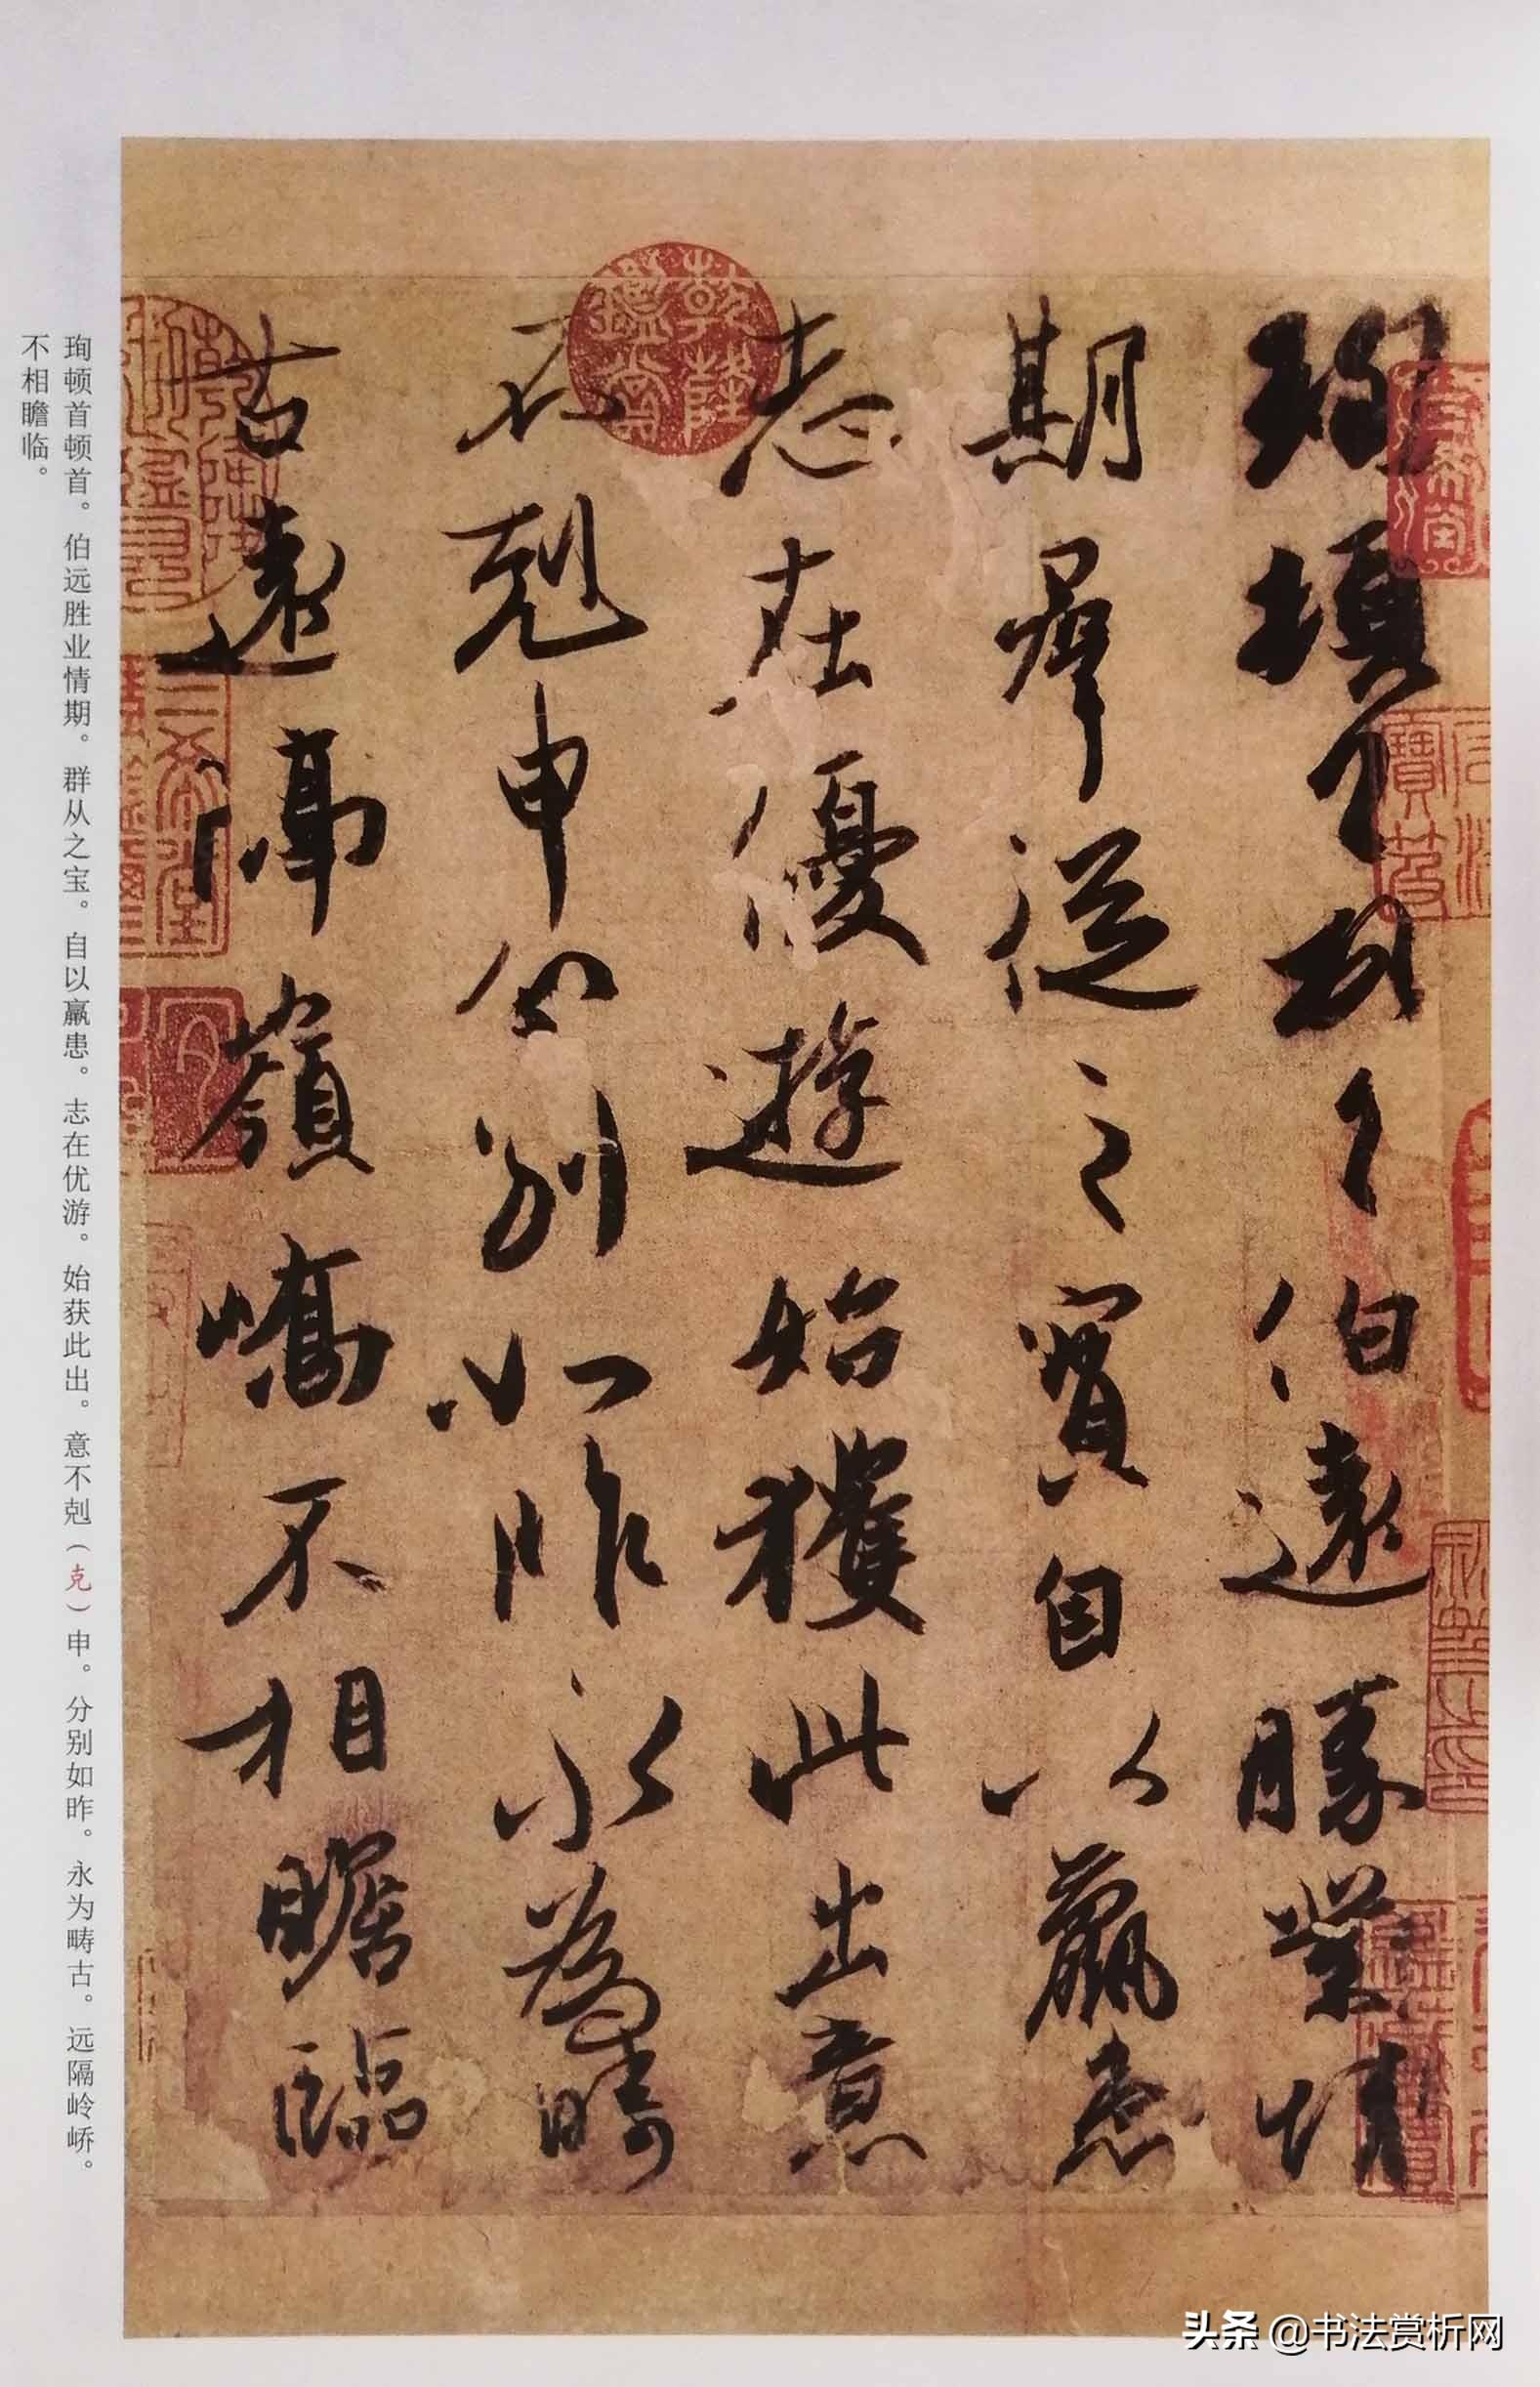 珣頓首頓首伯遠勝業情
期群從之寶自以羸患
志在優遊始獲此出意
不剋申分別如昨永為疇
古遠隔嶺嶠不相瞻臨
乾隆鑑賞
三希堂
珣顿首顿首。伯远胜业情期。群从之宝。自以羸患。志在优游。始获此出。意不剋（克）申。分别如昨。永为畴古。远隔岭峤。
不相瞻临。
头条 @书法赏析网